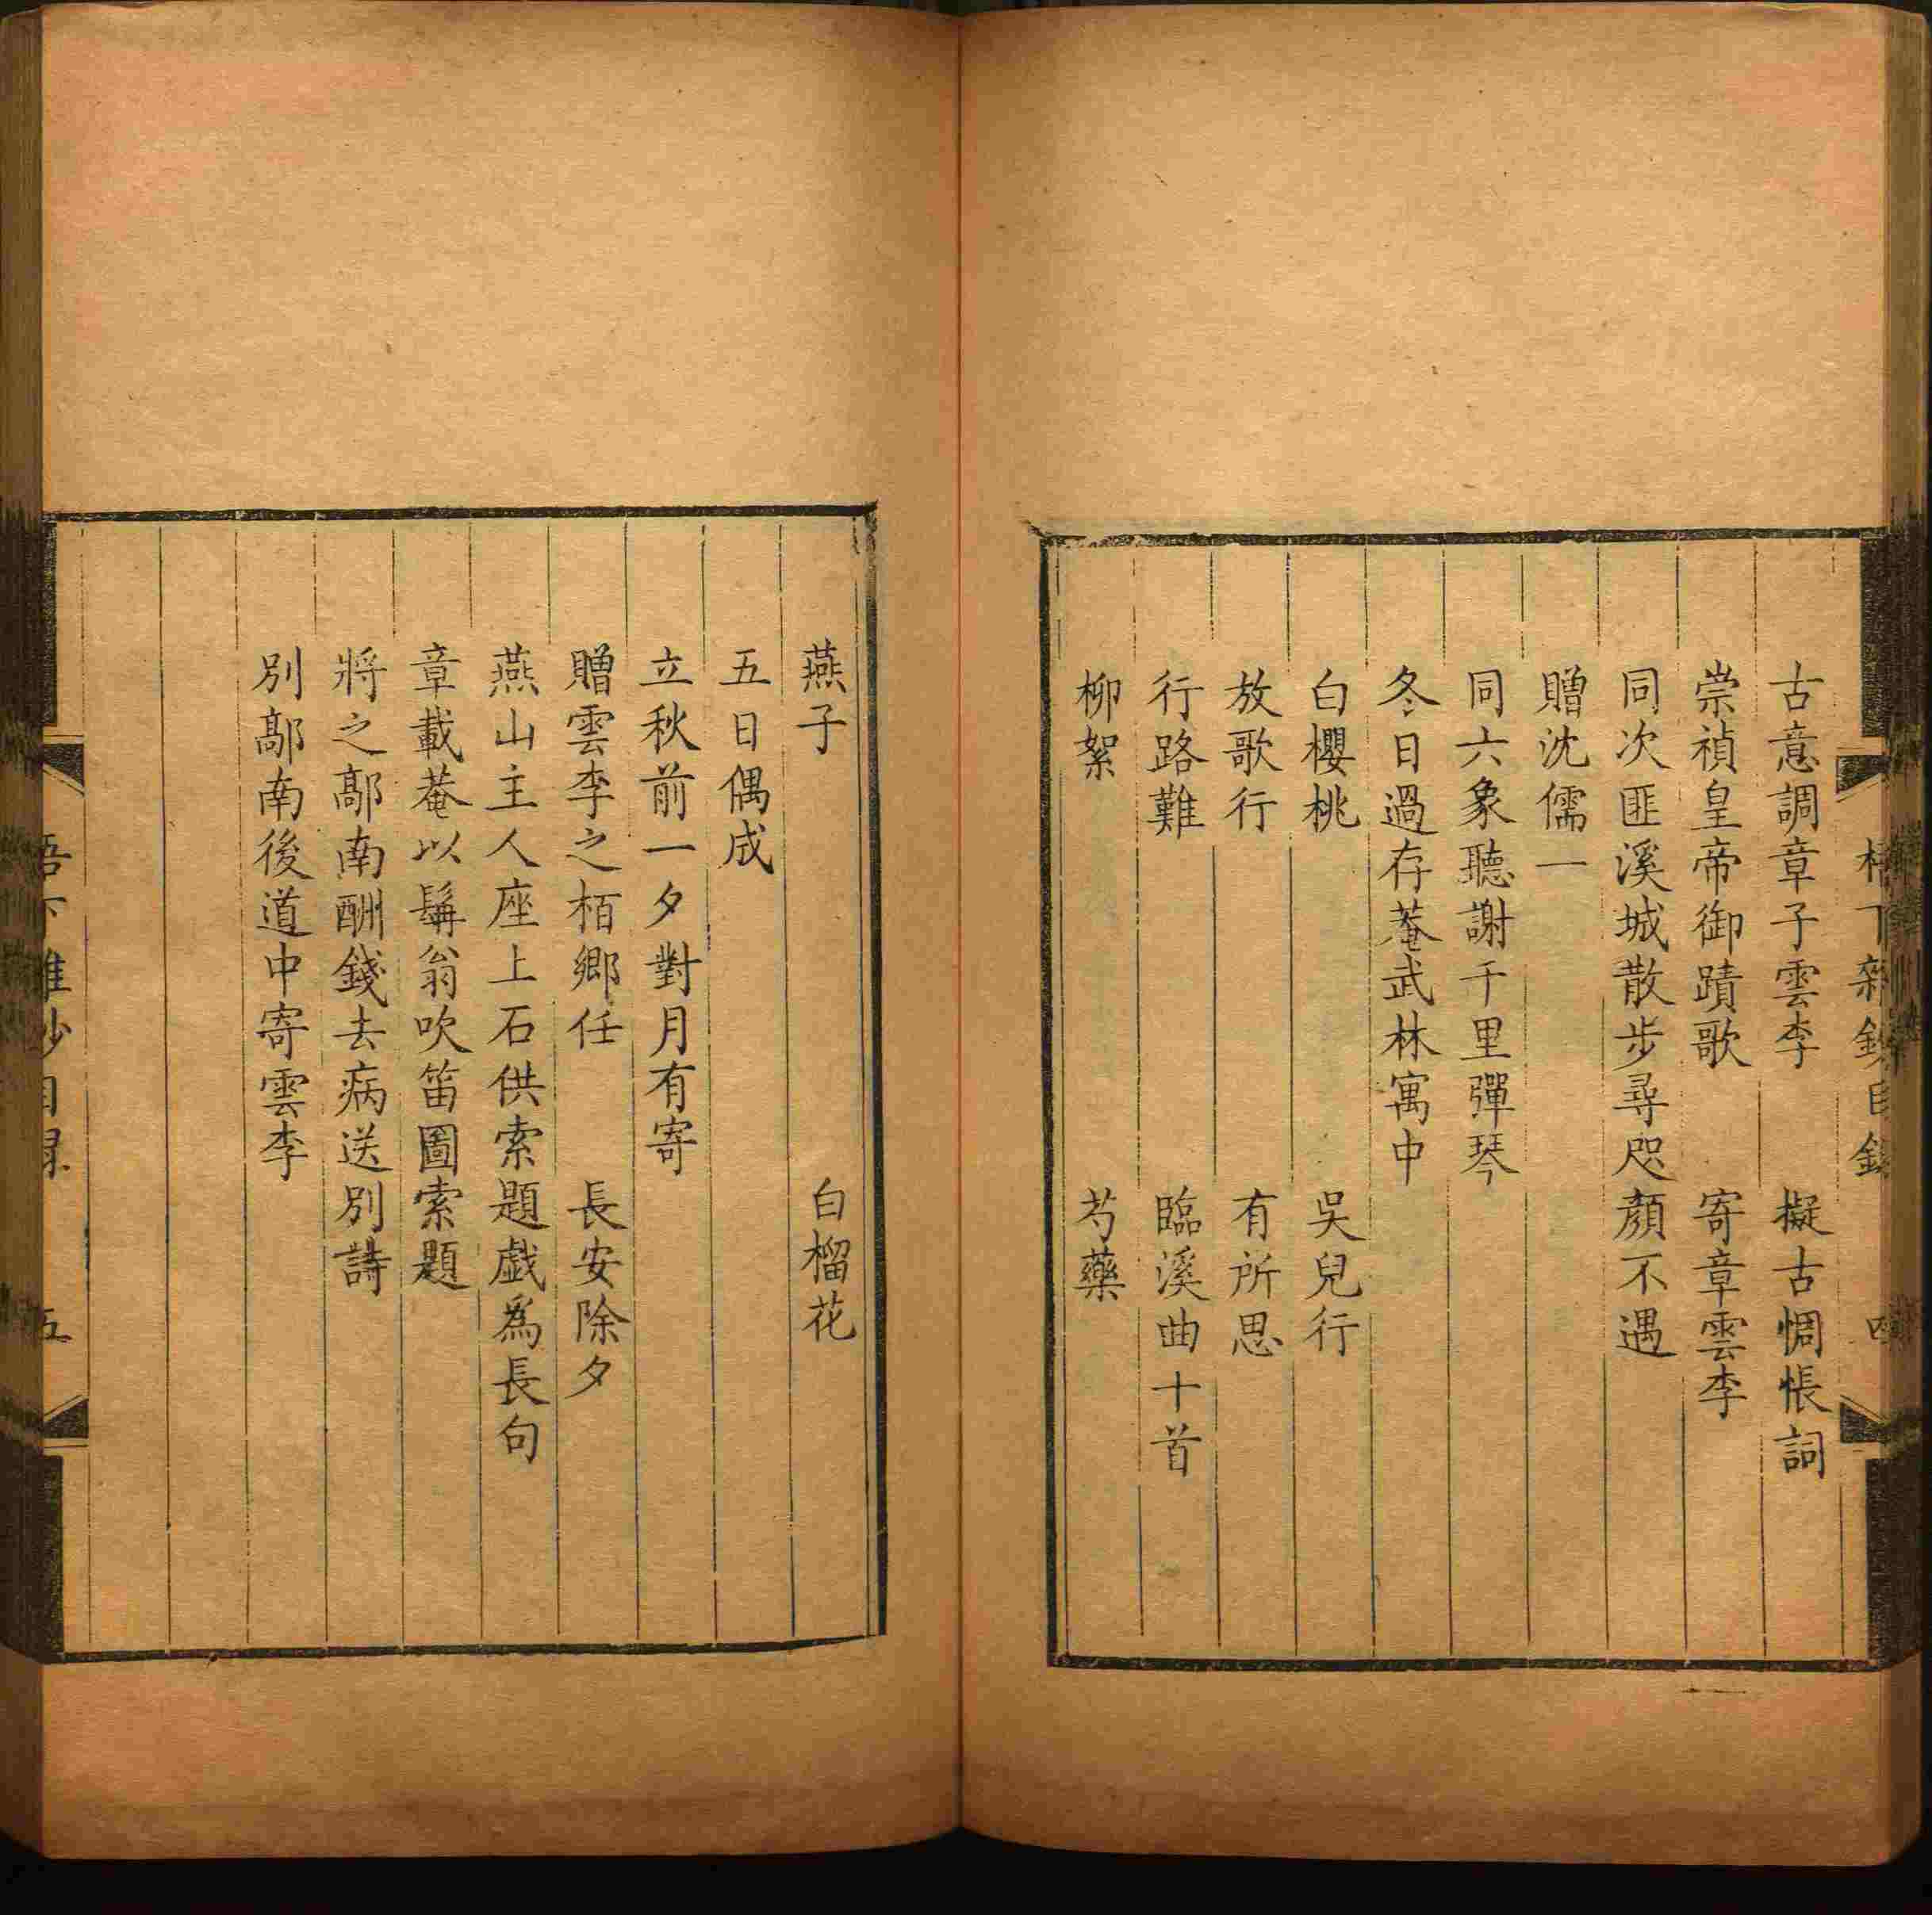 梧下雜鈔目錄 四
古意調章子雲李 擬古惆悵詞
崇禎皇帝御蹟歌 寄章雲李
同次匪溪城散步尋咫顏不遇
贈沈儒一
同六象聽謝千里彈琴
冬日過存菴武林寓中
白櫻桃 吳兒行
放歌行 有所思
行路難 臨溪曲十首
柳絮 芍藥
燕子 白榴花
五日偶成
立秋前一夕對月有寄
贈雲李之栢鄉任 長安除夕
燕山主人座上石供索題戲爲長句
章載菴以髯翁吹笛圖索題
將之鄗南酬錢去病送別詩
別鄗南後道中寄雲李
梧下雜鈔目錄 五